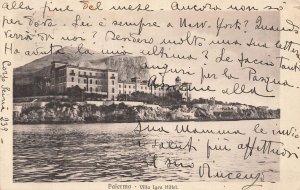 alla fine del mese. Ancora non so
per dove. Lei è sempre a New-York? Quando
verrà da noi? Desidero molto una sua lettera
Ha avuta la mia ultima? Le faccio tanti
auguri per la Pasqua.
alla
Sua Mamma le invio
i saluti più affettuosi
il suo Vincenzo
939
Palermo - Villa Igea Hôtel